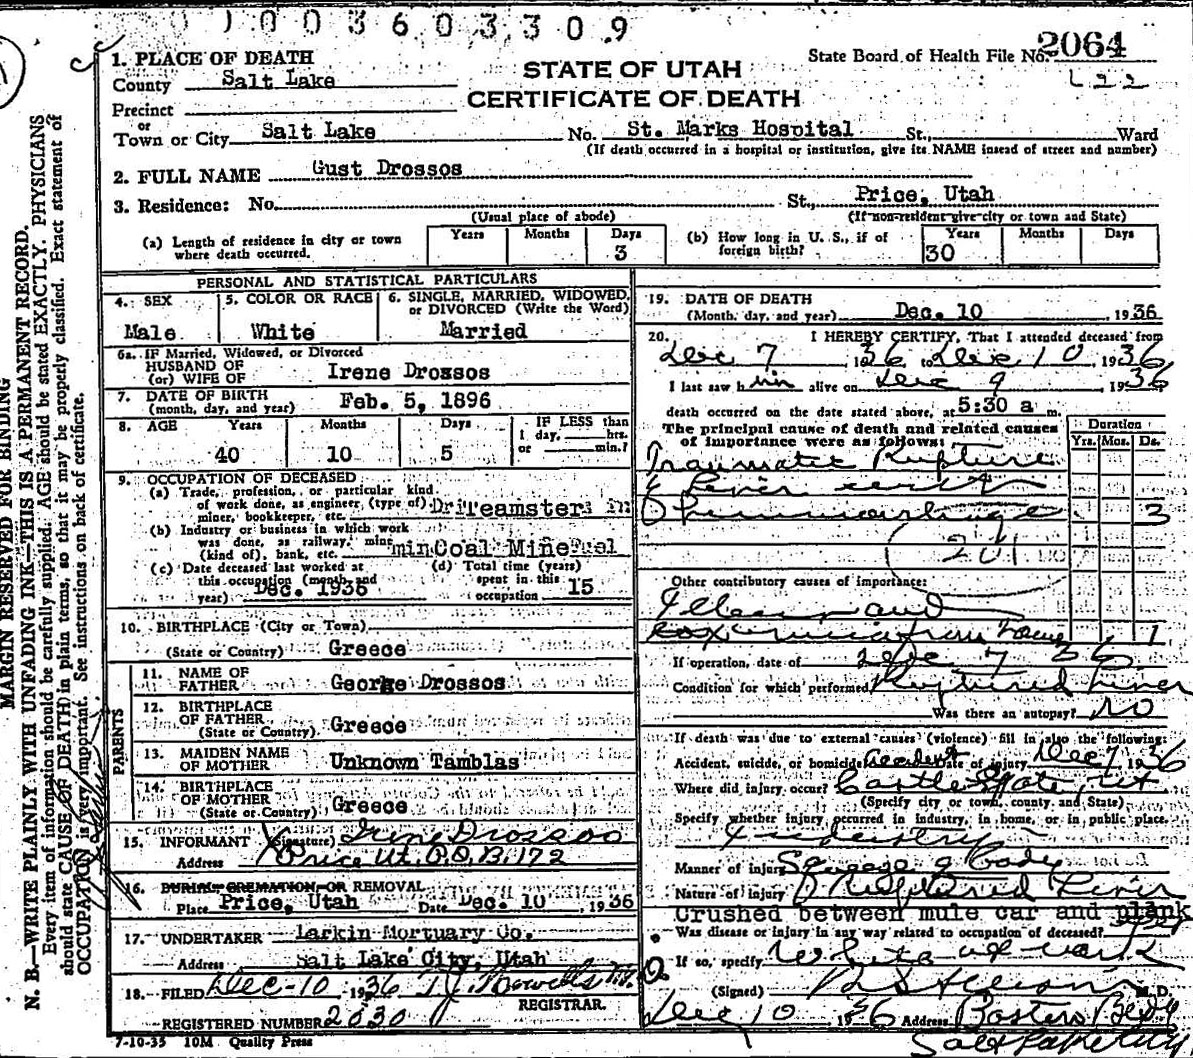 003603309
1. PLACE OF DEATH
County Salt Lake
Precinct
or
Town or City Salt Lake No. St. Marks Hospital St., Ward
(If death occurred in a hospital or institution, give its NAME insead of street and number)
STATE OF UTAH
CERTIFICATE OF DEATH
State Board of Health File No. 2064
L22
2. FULL NAME Gust Drossos
3. Residence: No. St., Price, Utah
(Usual place of abode) (If non-resident give city or town and State)
(a) Length of residence in city or town where death occurred. Years Months Days 3
(b) How long in U. S., if of foreign birth? Years 30 Months Days
PERSONAL AND STATISTICAL PARTICULARS
4. SEX Male
5. COLOR OR RACE White
6. SINGLE, MARRIED, WIDOWED, or DIVORCED (Write the Word) Married
6a. IF Married, Widowed, or Divorced
HUSBAND OF
(or) WIFE OF Irene Drossos
7. DATE OF BIRTH
(month, day, and year) Feb. 5, 1896
8. AGE Years 40 Months 10 Days 5
IF LESS than
1 day, hrs.
or min.?
9. OCCUPATION OF DECEASED
(a) Trade, profession, or particular kind
of work done, as engineer, (type of)
miner, bookkeeper, etc. Teamster
(b) Industry or business in which work
was done, as railway, mine
(kind of), bank, etc. Coal Mine
(c) Date deceased last worked at
this occupation (month and
year) Dec. 1936
(d) Total time (years)
spent in this
occupation 15
10. BIRTHPLACE (City or Town)
(State or Country) Greece
PARENTS
11. NAME OF
FATHER George Drossos
12. BIRTHPLACE
OF FATHER
(State or Country) Greece
13. MAIDEN NAME
OF MOTHER Unknown Tamblas
14. BIRTHPLACE
OF MOTHER
(State or Country) Greece
15. INFORMANT (Signature) Irene Drossos
Address Price Ut. P.O.B. 172
16. BURIAL CREMATION OR REMOVAL
Place Price, Utah Date Dec. 10, 1936
17. UNDERTAKER Larkin Mortuary Co.
Address Salt Lake City, Utah
18. FILED Dec-10, 1936
REGISTRAR.
REGISTERED NUMBER 2030
7-10-35 10M Quality Press
19. DATE OF DEATH
(Month, day, and year) Dec. 10, 1936
20. I HEREBY CERTIFY, That I attended deceased from
Dec 7, 1936, to Dec 10, 1936
I last saw him alive on Dec 9, 1936
death occurred on the date stated above, at 5:30 a m.
The principal cause of death and related causes
of importance were as follows:
Duration
Yrs. Mos. Ds.
Traumatic Rupture
of Liver with
Hemorrhage 3
201
Other contributory causes of importance:
1
If operation, date of Dec 7 36
Condition for which performed Ruptured Liver
Was there an autopsy? No
If death was due to external causes (violence) fill in also the following:
Accident, suicide, or homicide Accident Date of injury Dec 7, 1936
Where did injury occur? Castle Gate, Ut
(Specify city or town, county, and State)
Specify whether injury occurred in industry, in home, or in public place.
Industry
Manner of injury Squeeze of Body
Nature of injury Ruptured Liver
Crushed between mule car and plank
Was disease or injury in any way related to occupation of deceased?
If so, specify While at work
(Signed) M. D.
Dec 10, 1936 Address Boston Bldg
Salt Lake City
MARGIN RESERVED FOR BINDING
N. B.—WRITE PLAINLY WITH UNFADING INK—THIS IS A PERMANENT RECORD.
Every item of information should be carefully supplied. AGE should be stated EXACTLY. PHYSICIANS
should state CAUSE OF DEATH in plain terms, so that it may be properly classified. Exact statement of
OCCUPATION is very important. See instructions on back of certificate.